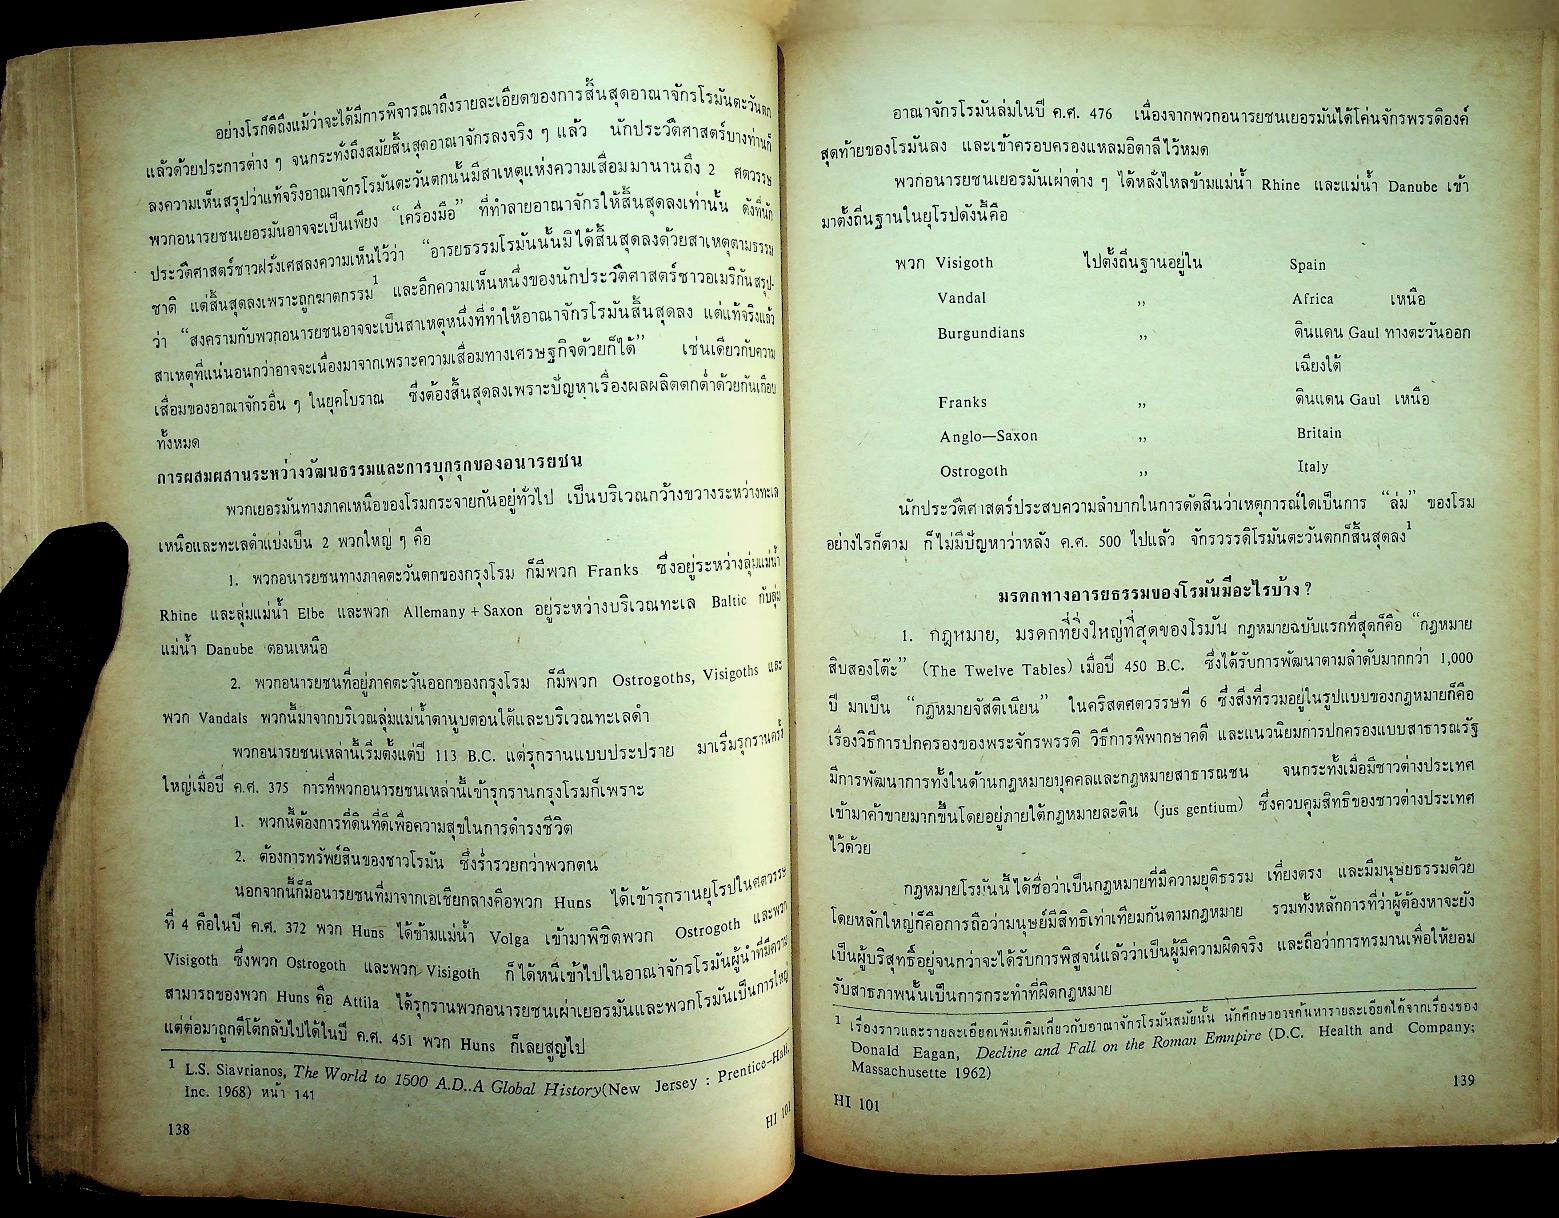 อย่างไรก็ดีถึงแม้ว่าจะได้มีการพิจารณาถึงรายละเอียดของการสิ้นสุดอาณาจักรโรมันตะวันตก
แล้วด้วยประการต่าง ๆ จนกระทั่งถึงสมัยสิ้นสุดอาณาจักรลงจริง ๆ แล้ว นักประวัติศาสตร์บางท่านก็
ลงความเห็นสรุปว่าแท้จริงอาณาจักรโรมันตะวันตกนั้นมีสาเหตุแห่งความเสื่อมมานานถึง 2 ศตวรรษ
พวกอนารยชนเยอรมันอาจจะเป็นเพียง “เครื่องมือ” ที่ทำลายอาณาจักรให้สิ้นสุดลงเท่านั้น ดังที่นัก
ประวัติศาสตร์ชาวฝรั่งเศสลงความเห็นไว้ว่า “อารยธรรมโรมันนั้นมิได้สิ้นสุดลงด้วยสาเหตุตามธรรม
ชาติ แต่สิ้นสุดลงเพราะถูกฆาตกรรม1 และอีกความเห็นหนึ่งของนักประวัติศาสตร์ชาวอเมริกันสรุป
ว่า “สงครามกับพวกอนารยชนอาจจะเป็นสาเหตุหนึ่งที่ทำให้อาณาจักรโรมันสิ้นสุดลง แต่แท้จริงแล้ว
สาเหตุที่แน่นอนกว่าอาจจะเนื่องมาจากเพราะความเสื่อมทางเศรษฐกิจด้วยก็ได้” เช่นเดียวกับความ
เสื่อมของอาณาจักรอื่น ๆ ในยุคโบราณ ซึ่งต้องสิ้นสุดลงเพราะปัญหาเรื่องผลผลิตตกต่ำด้วยกันเกือบ
ทั้งหมด
การผสมผสานระหว่างวัฒนธรรมและการบุกรุกของอนารยชน
พวกเยอรมันทางภาคเหนือของโรมกระจายกันอยู่ทั่วไป เป็นบริเวณกว้างขวางระหว่างทะเล
เหนือและทะเลดำแบ่งเป็น 2 พวกใหญ่ ๆ คือ
1. พวกอนารยชนทางภาคตะวันตกของกรุงโรม ก็มีพวก Franks ซึ่งอยู่ระหว่างลุ่มแม่น้ำ
Rhine และลุ่มแม่น้ำ Elbe และพวก Allemany + Saxon อยู่ระหว่างบริเวณทะเล Baltic กับลุ่ม
แม่น้ำ Danube ตอนเหนือ
2. พวกอนารยชนที่อยู่ภาคตะวันออกของกรุงโรม ก็มีพวก Ostrogoths, Visigoths และ
พวก Vandals พวกนี้มาจากบริเวณลุ่มแม่น้ำดานูบตอนใต้และบริเวณทะเลดำ
พวกอนารยชนเหล่านี้เริ่มตั้งแต่ปี 113 B.C. แต่รุกรานแบบประปราย มาเริ่มรุกรานครั้ง
ใหญ่เมื่อปี ค.ศ. 375 การที่พวกอนารยชนเหล่านี้เข้ารุกรานกรุงโรมก็เพราะ
1. พวกนี้ต้องการที่ดินที่ดีเพื่อความสุขในการดำรงชีวิต
2. ต้องการทรัพย์สินของชาวโรมัน ซึ่งร่ำรวยกว่าพวกตน
นอกจากนี้ก็มีอนารยชนที่มาจากเอเชียกลางคือพวก Huns ได้เข้ารุกรานยุโรปในศตวรรษ
ที่ 4 คือในปี ค.ศ. 372 พวก Huns ได้ข้ามแม่น้ำ Volga เข้ามาพิชิตพวก Ostrogoth และพวก
Visigoth ซึ่งพวก Ostrogoth และพวก Visigoth ก็ได้หนีเข้าไปในอาณาจักรโรมันผู้นำที่มีความ
สามารถของพวก Huns คือ Attila ได้รุกรานพวกอนารยชนเผ่าเยอรมันและพวกโรมันเป็นการใหญ่
แต่ต่อมาถูกตีโต้กลับไปได้ในปี ค.ศ. 451 พวก Huns ก็เลยสูญไป
1 L.S. Siavrianos, The World to 1500 A.D..A Global History(New Jersey : Prentice-Hall,
Inc. 1968) หน้า 141
138
HI 101
อาณาจักรโรมันล่มในปี ค.ศ. 476 เนื่องจากพวกอนารยชนเยอรมันได้โค่นจักรพรรดิองค์
สุดท้ายของโรมันลง และเข้าครอบครองแหลมอิตาลีไว้หมด
พวกอนารยชนเยอรมันเผ่าต่าง ๆ ได้หลั่งไหลข้ามแม่น้ำ Rhine และแม่น้ำ Danube เข้า
มาตั้งถิ่นฐานในยุโรปดังนี้คือ
พวก Visigoth ไปตั้งถิ่นฐานอยู่ใน Spain
Vandal ,, Africa เหนือ
Burgundians ,, ดินแดน Gaul ทางตะวันออก
เฉียงใต้
Franks ,, ดินแดน Gaul เหนือ
Anglo—Saxon ,, Britain
Ostrogoth ,, Italy
นักประวัติศาสตร์ประสบความลำบากในการตัดสินว่าเหตุการณ์ใดเป็นการ “ล่ม” ของโรม
อย่างไรก็ตาม ก็ไม่มีปัญหาว่าหลัง ค.ศ. 500 ไปแล้ว จักรวรรดิโรมันตะวันตกก็สิ้นสุดลง1
มรดกทางอารยธรรมของโรมันมีอะไรบ้าง ?
1. กฎหมาย, มรดกที่ยิ่งใหญ่ที่สุดของโรมัน กฎหมายฉบับแรกที่สุดก็คือ “กฎหมาย
สิบสองโต๊ะ” (The Twelve Tables) เมื่อปี 450 B.C. ซึ่งได้รับการพัฒนาตามลำดับมากกว่า 1,000
ปี มาเป็น “กฎหมายจัสติเนียน” ในคริสตศตวรรษที่ 6 ซึ่งสิ่งที่รวมอยู่ในรูปแบบของกฎหมายก็คือ
เรื่องวิธีการปกครองของพระจักรพรรดิ วิธีการพิพากษาคดี และแนวนิยมการปกครองแบบสาธารณรัฐ
มีการพัฒนาการทั้งในด้านกฎหมายบุคคลและกฎหมายสาธารณชน จนกระทั่งเมื่อมีชาวต่างประเทศ
เข้ามาค้าขายมากขึ้นโดยอยู่ภายใต้กฎหมายละติน (jus gentium) ซึ่งควบคุมสิทธิของชาวต่างประเทศ
ไว้ด้วย
กฎหมายโรมันนี้ได้ชื่อว่าเป็นกฎหมายที่มีความยุติธรรม เที่ยงตรง และมีมนุษยธรรมด้วย
โดยหลักใหญ่ก็คือการถือว่ามนุษย์มีสิทธิเท่าเทียมกันตามกฎหมาย รวมทั้งหลักการที่ว่าผู้ต้องหาจะยัง
เป็นผู้บริสุทธิ์อยู่จนกว่าจะได้รับการพิสูจน์แล้วว่าเป็นผู้มีความผิดจริง และถือว่าการทรมานเพื่อให้ยอม
รับสาธภาพนั้นเป็นการกระทำที่ผิดกฎหมาย
1 เรื่องราวและรายละเอียดเพิ่มเติมเกี่ยวกับอาณาจักรโรมันสมัยนั้น นักศึกษาอาจค้นหารายละเอียดได้จากเรื่องของ
Donald Eagan, Decline and Fall on the Roman Emnpire (D.C. Health and Company;
Massachusette 1962)
139
HI 101